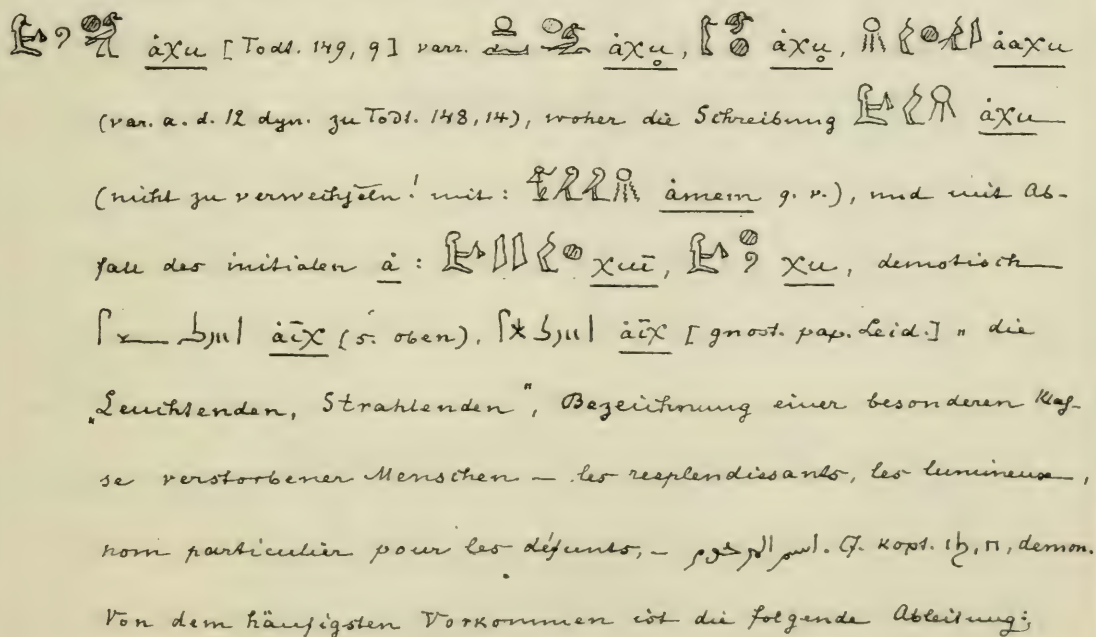 ȧχu [Todt. 149, 9] varr. ȧχu̥, ȧχu̥, ȧaχu
(var. a. d. 12 dyn. zu Todt. 148, 14), woher die Schreibung ȧχu
(nicht zu verwechseln! mit: ȧmem q. v.), und mit Ab-
fall des initialen ȧ: χuī, χu, demotisch
ȧīχ (s. oben), ȧīχ [gnost. pap. Leid.] „ die
„Leuchtenden, Strahlenden", Bezeichnung einer besonderen Klas-
se verstorbener Menschen – les resplendissants, les lumineux,
nom particulier pour les défunts, – اسم المرحوم. Cf. kopt. ⲓϧ, ⲡ, demon.
Von dem häufigsten Vorkommen ist die folgende Ableitung: